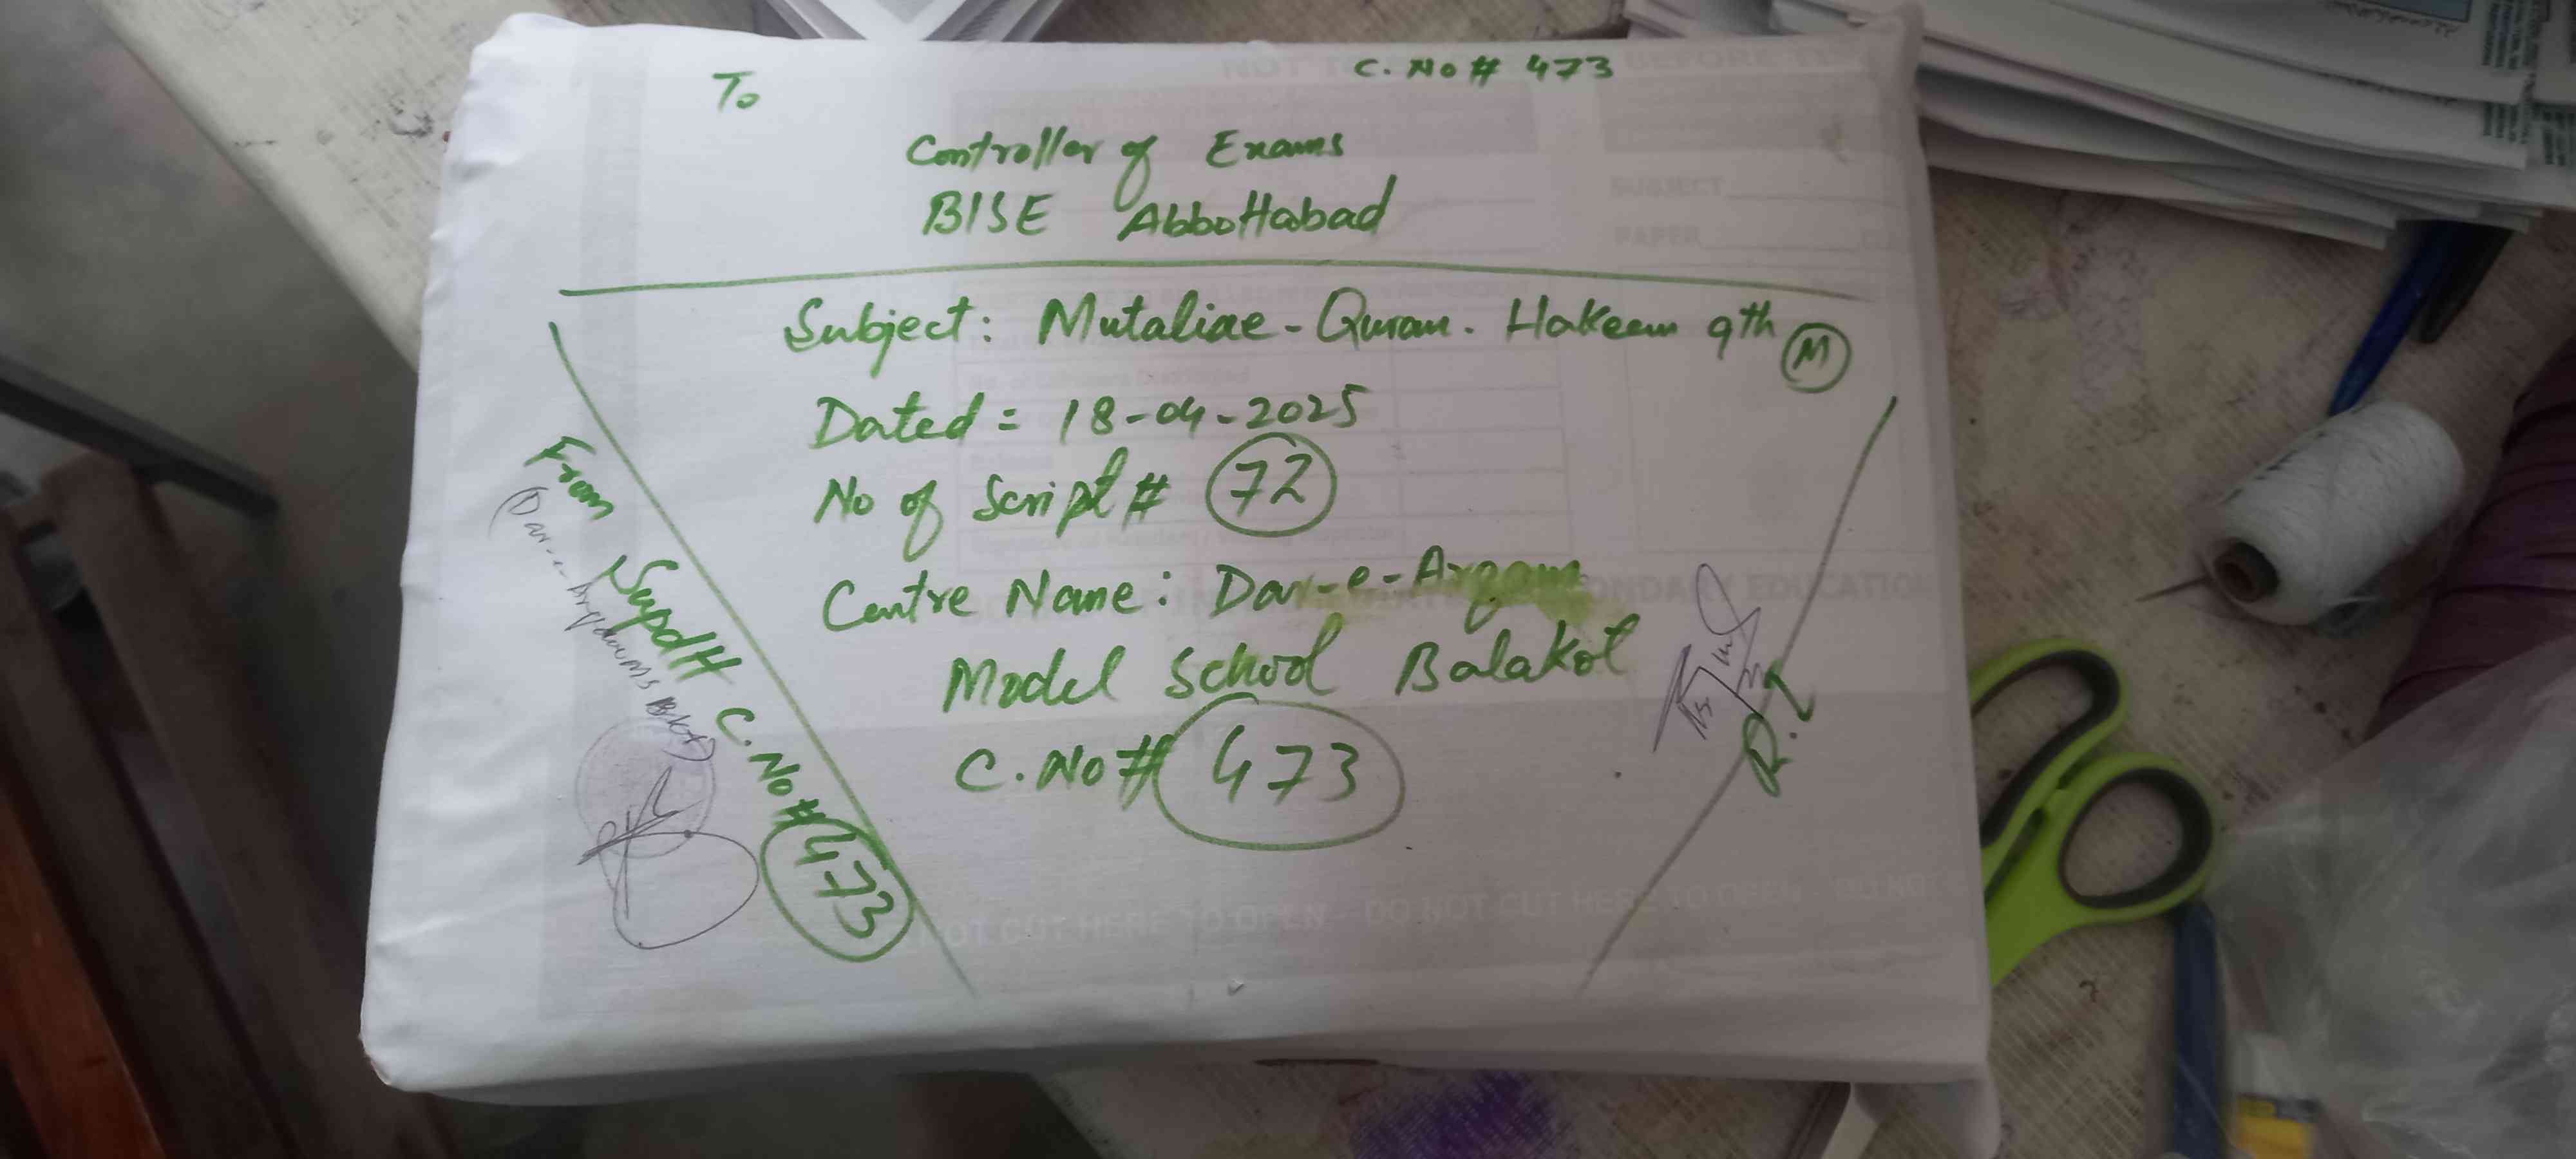 To
C. No # 473
Controller of Exams
BISE Abbottabad
Subject: Mutaliae-Quran. Hakeem 9th M
Dated = 18-04-2025
No of Script # 72
Centre Name: Dar-e-Arqam
Model School Balakot
C. No # 473
From Supdtt C. No # 473
(Dar-e-Arqam MS Bkot)
R.I
SUBJECT
PAPER
NOT CUT HERE TO OPEN - DO NOT CUT HERE TO OPEN - DO NOT